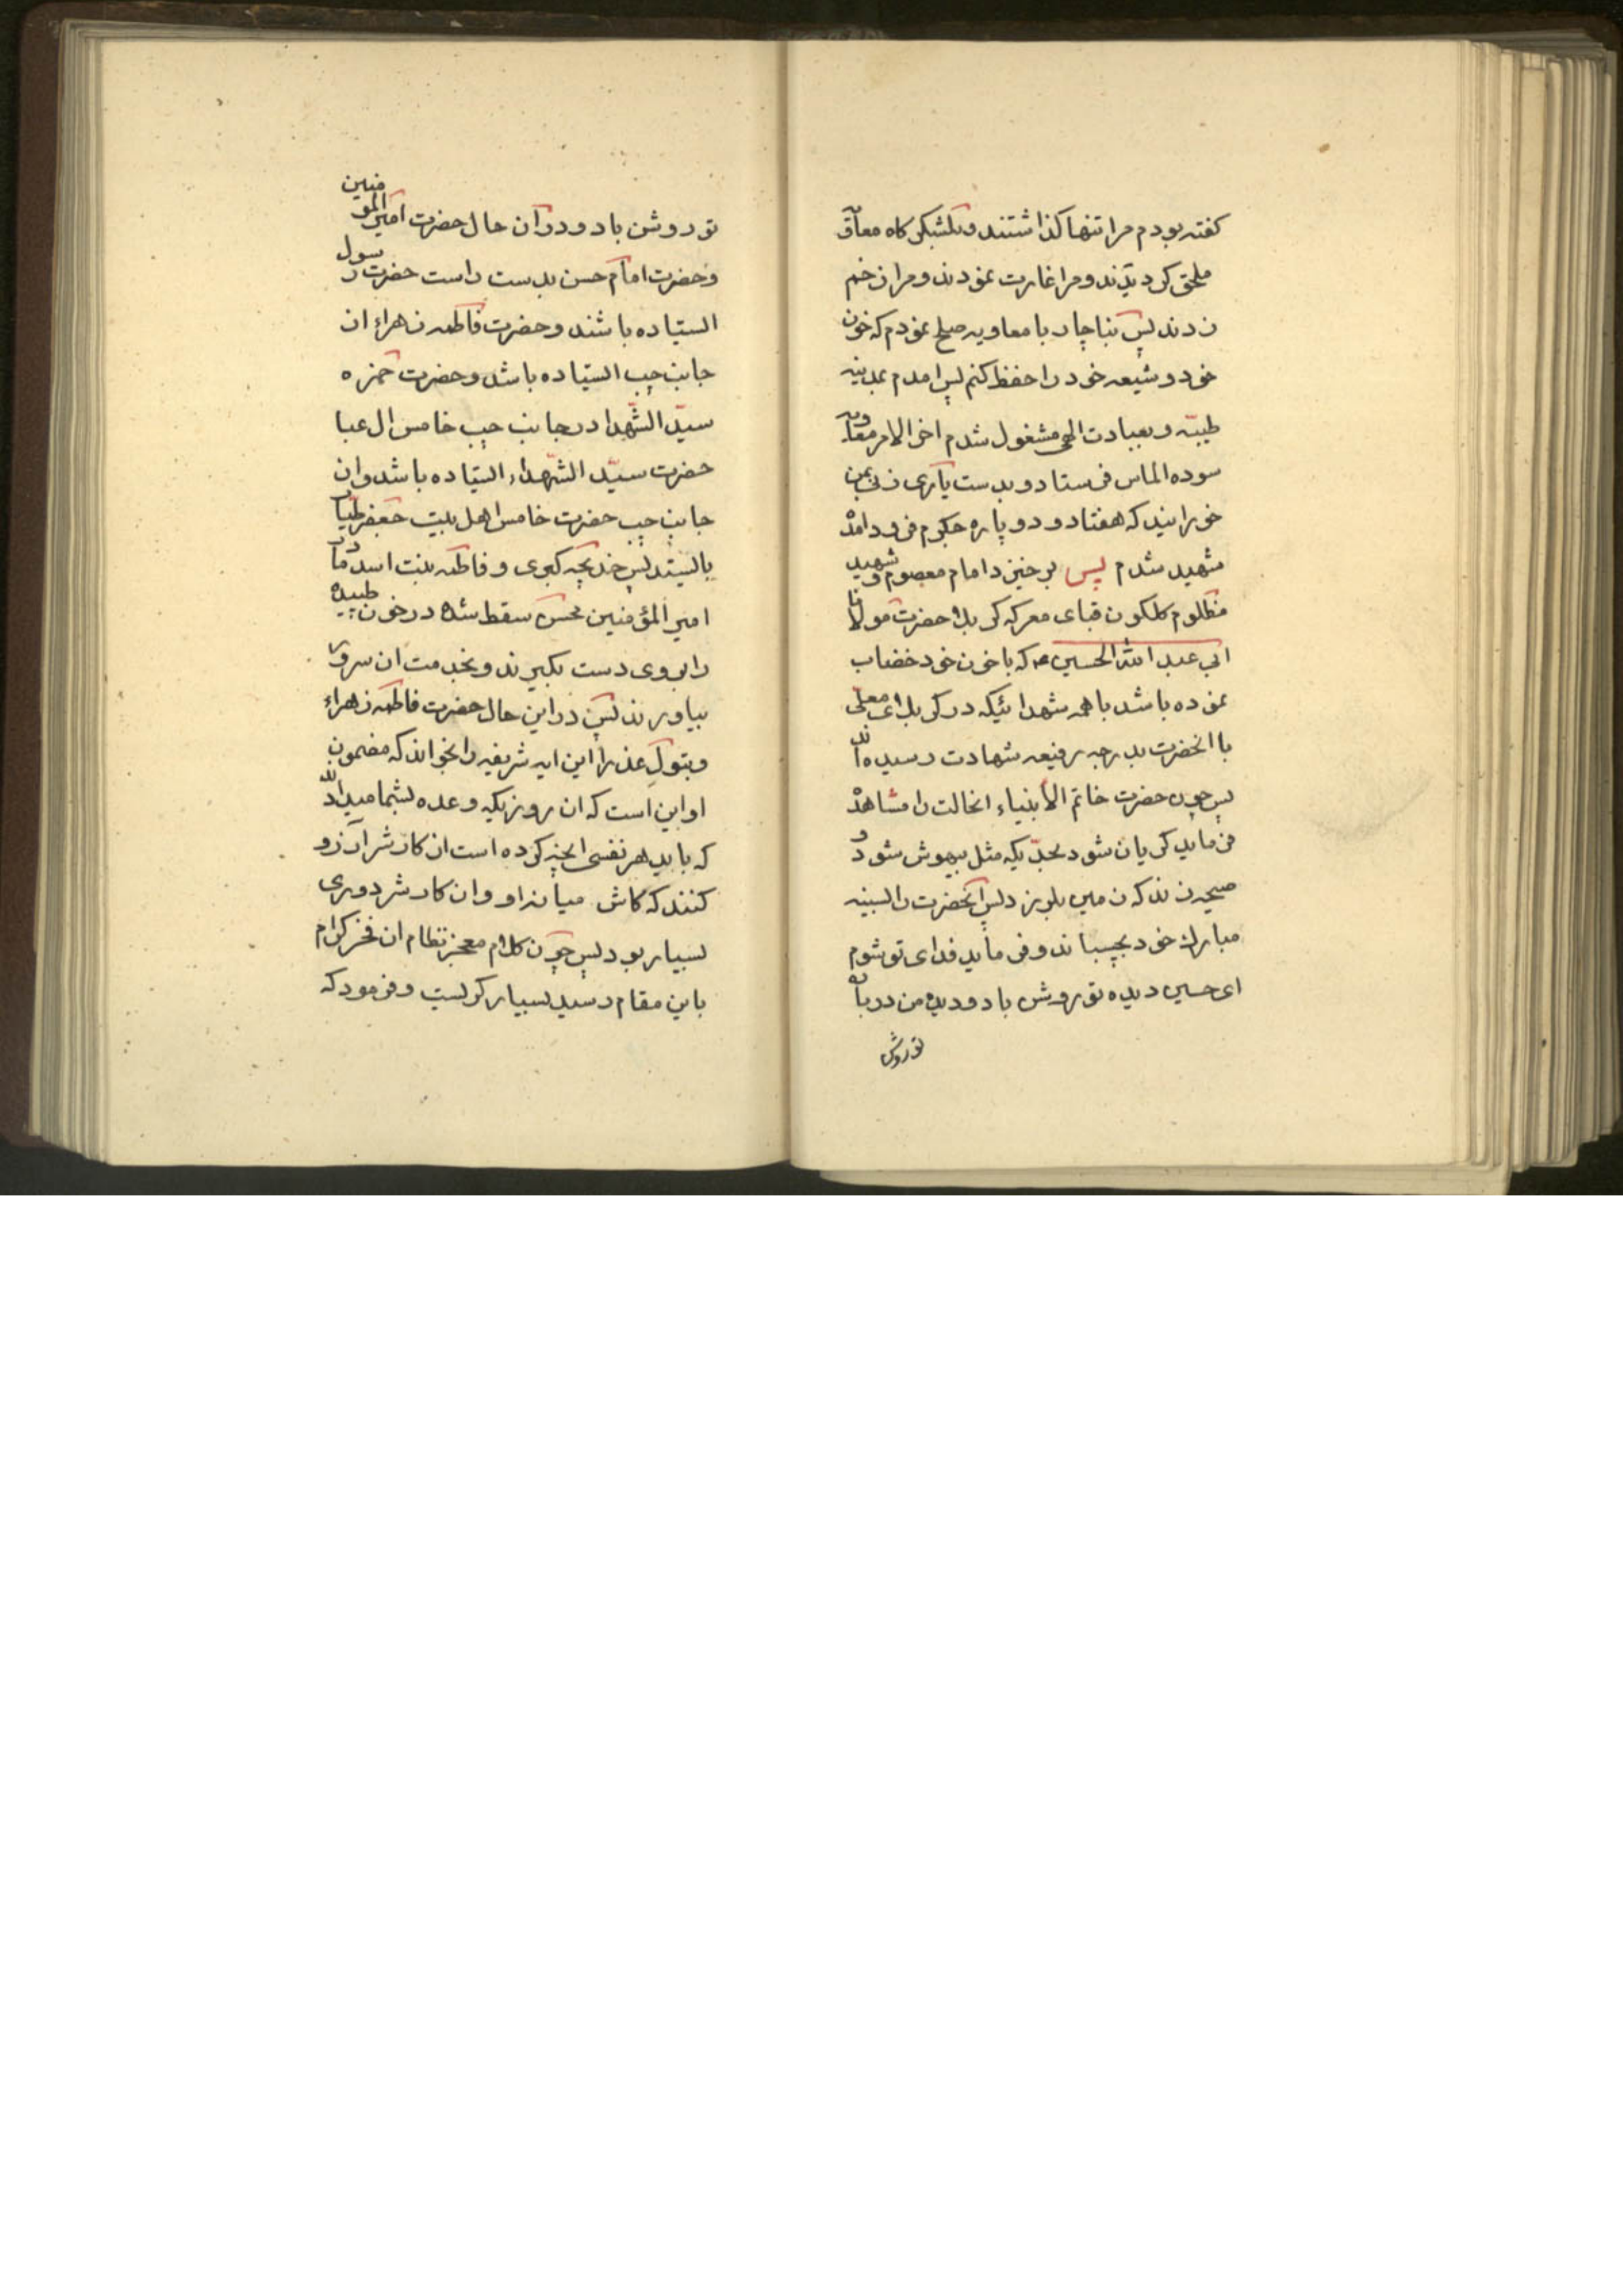 كفته بودم مرا تنها كذاشتند و بلشبكر كاه معاويه
ملحق كرديدند و مرا غارت نمودند و مرا زخم
زدند پس بناچار با معاويه صلح نمودم كه خون
خود و شيعه خود را حفظ كنم پس امدم بمدينه
طيبّه و بعبادت الهى مشغول شدم اخر الامر معاويه
سوده الماس فرستاد و بدست يارى زنى بمن
خورانيد كه هفتاد و دو پاره جكرم فرود امد
شهيد شدم پس برخيزد امام معصوم و شهيد
مظلوم كلكون قباى معركه كربلا حضرت مولانا
ابى عبد الله الحسين ع كه با خون خود خضاب
نموده باشد با همه شهدائيكه در كربلاى معلى
با انحضرت بدرجه رفيعه شهادت رسيده اند
پس چون حضرت خاتم الأنبياء انحالت را مشاهده
فرمايد كريان شود بحدّيكه مثل بيهوش شود و
صيحه زند كه زمين بلرزد پس انحضرت را بسينه
مبارك خود بچسباند و فرمايد فداى تو شوم
اى حسين ديده تو روشن باد و ديده من درباره
تو روشن
تو روشن باد و در ان حال حضرت امير المومنين
و حضرت امام حسن بدست راست حضرت رسول
ايستاده باشند و حضرت فاطمه زهراء از
جانب چپ ايستاده باشد و حضرت حمزه
سيّد الشّهدا در جانب چپ خامس ال عبا
حضرت سيّد الشّهداء ايستاده باشد و از
جانب چپ حضرت خامس اهل بيت جعفر طيار
بايستد پس خديجه كبرى و فاطمه بنت اسد مادر
امير المؤمنين محسن سقط شده در خون طپيده
را بروى دست بكيرند و بخدمت ان سرور
بياورند پس در اين حال حضرت فاطمه زهراء
و بتول عذرا اين ايه شريفه را بخواند كه مضمون
او اين است كه ان روزيكه وعده بشما ميداد الله
كه بايد هر نفسى انچه كرده است از كار شر ارزو
كنند كه كاش ميانه او و ان كار شر دورى
بسيار بود پس چون كلام معجز نظام ان فخر كرام
باين مقام رسيد بسيار كريست و فرمود كه